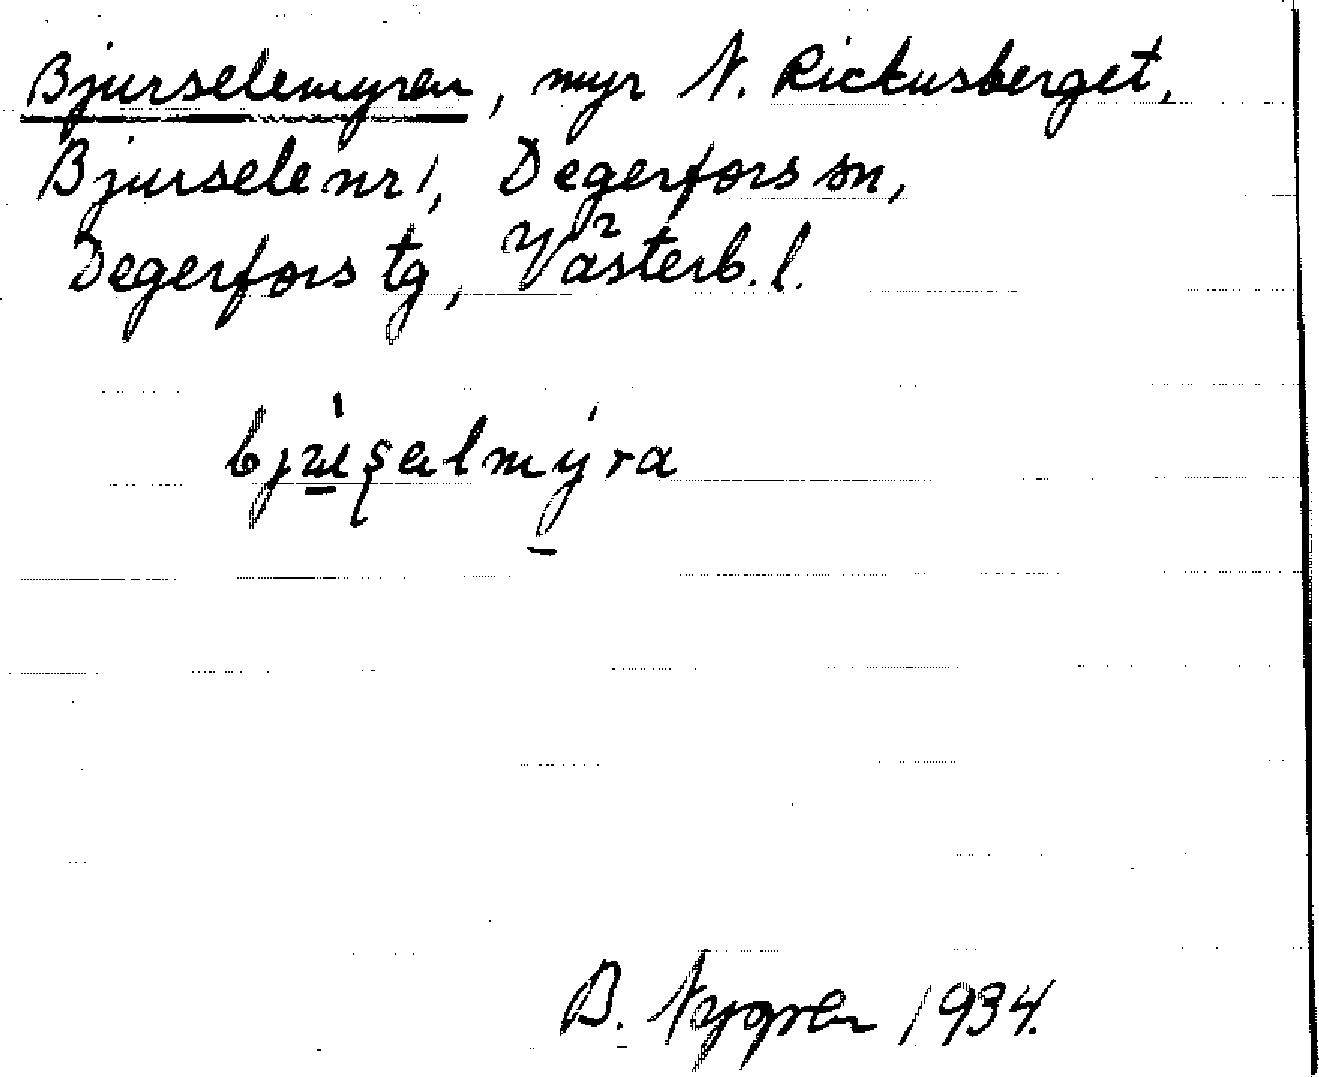 Bjurselemyren, myr N. Rickusberget,
Bjursele nr 1, Degerfors sn,
Degerfors tg, Västerb. l.
B. Nygren 1934.